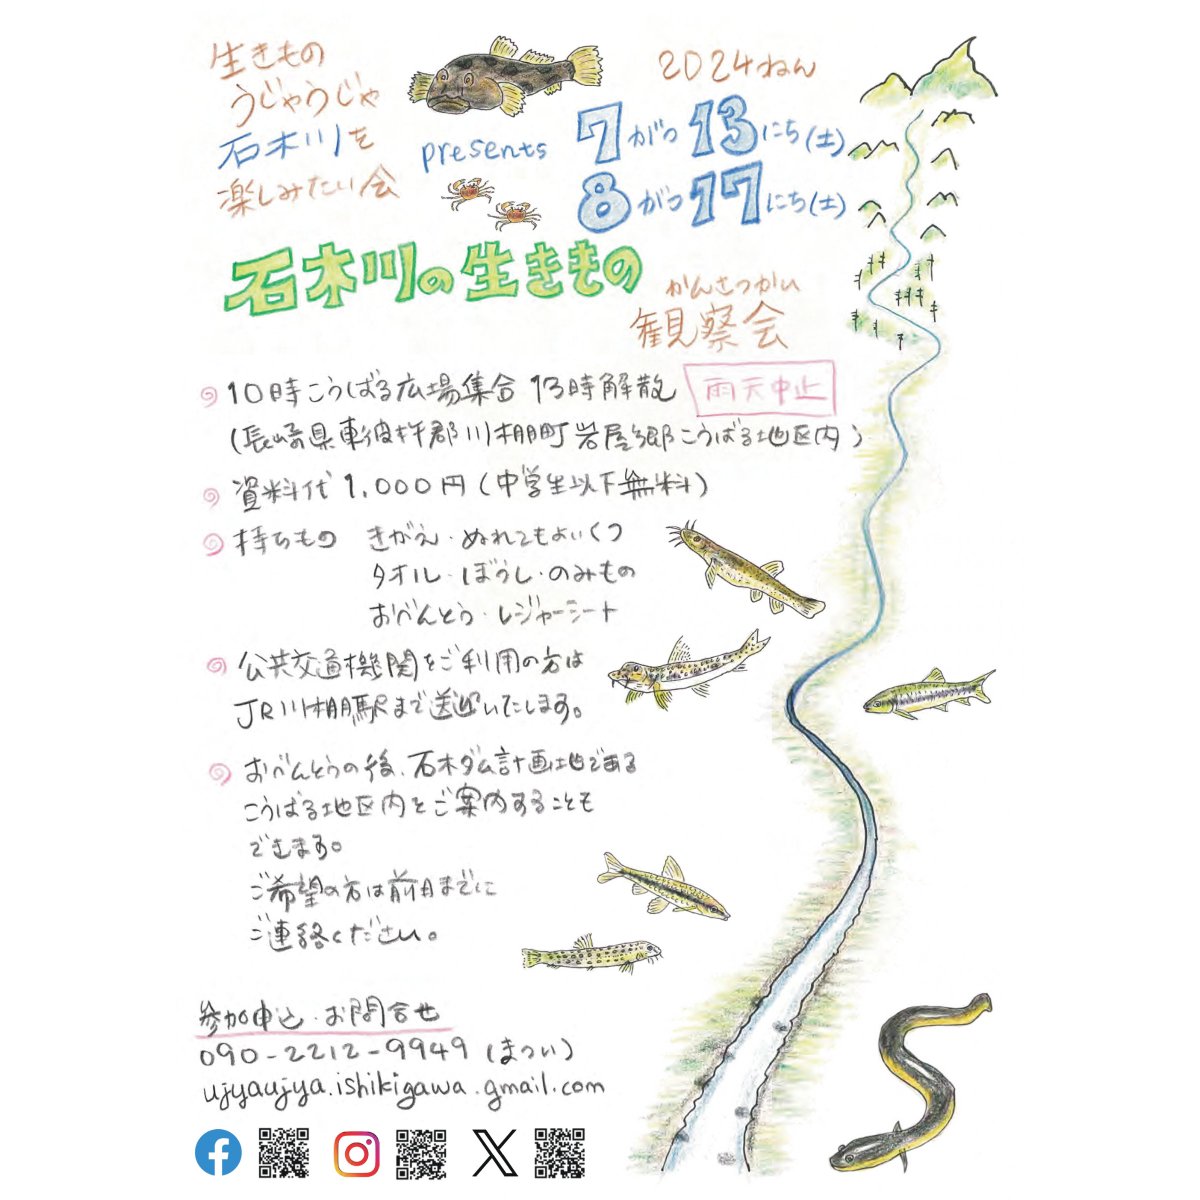 生きもの
うじゃうじゃ
石木川を
楽しみたい会
presents
2024ねん
7がつ13にち(土)
8がつ17にち(土)
石木川の生きもの
かんさつかい
観察会
10時こうばる広場集合 13時解散 雨天中止
(長崎県東彼杵郡川棚町岩屋郷こうばる地区内)
資料代 1,000円(中学生以下無料)
持ちもの きがえ・ぬれてもよいくつ
タオル・ぼうし・のみもの
おべんとう・レジャーシート
公共交通機関をご利用の方は
JR川棚駅まで送迎いたします。
おべんとうの後、石木ダム計画地である
こうばる地区内をご案内することも
できます。
ご希望の方は前日までに
ご連絡ください。
参加申込・お問合せ
090-2212-9949(まつい)
ujyaujya.ishikigawa.gmail.com